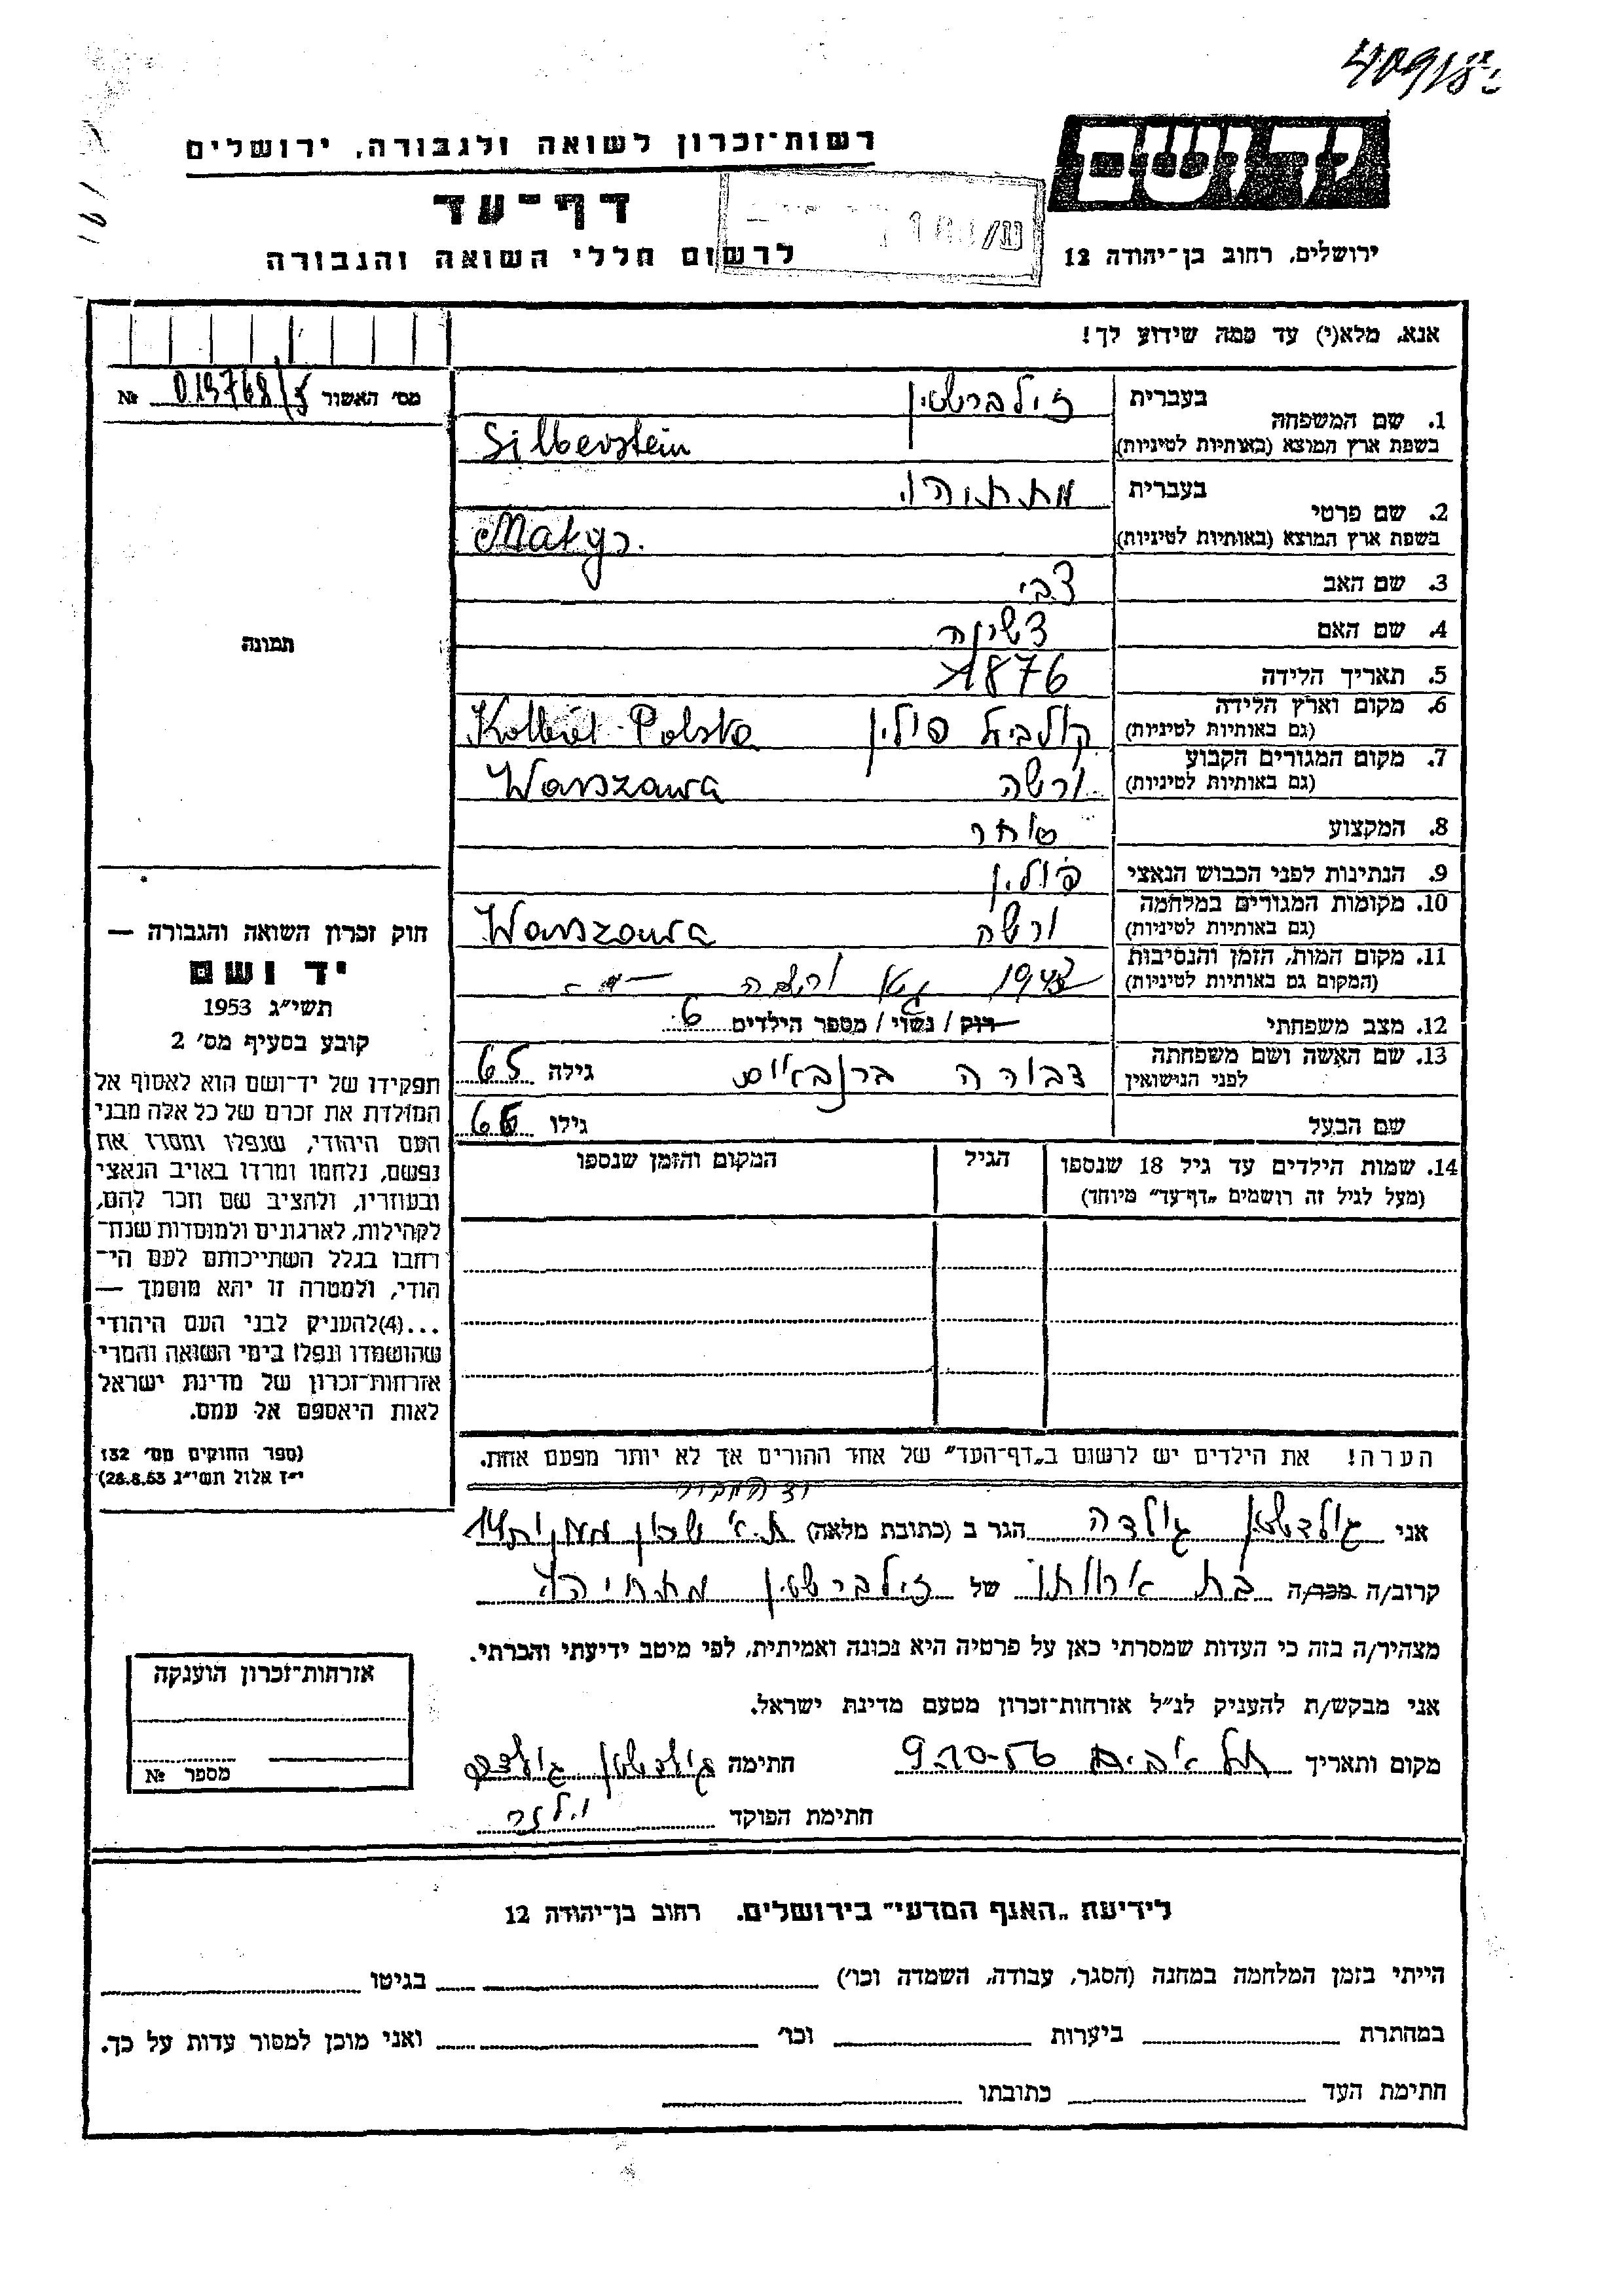 יד ושם
רשות־זכרון לשואה ולגבורה, ירושלים
דף־עד
לרשום חללי השואה והגבורה
ירושלים, רחוב בן־יהודה 12
אנא, מלא(י) עד כמה שידוע לך!
מס׳ האשור № 019768/ג
1. שם המשפחה בעברית זילברשטין
בשפת ארץ המוצא (באותיות לטיניות) Silberstein
2. שם פרטי בעברית מתתיהו
בשפת ארץ המוצא (באותיות לטיניות)
3. שם האב צבי
4. שם האם
5. תאריך הלידה 1876
6. מקום וארץ הלידה
(גם באותיות לטיניות) קולביל פולין Kolbiel-Polska
7. מקום המגורים הקבוע
(גם באותיות לטיניות) ורשה Warszawa
8. המקצוע סוחר
9. הנתינות לפני הכבוש הנאצי פולין
10. מקומות המגורים במלחמה
(גם באותיות לטיניות) ורשה Warszawa
11. מקום המות, הזמן והנסיבות
(המקום גם באותיות לטיניות) גטו ורשה
12. מצב משפחתי רוק / נשוי / מספר הילדים 6
13. שם האשה ושם משפחתה
לפני הנישואין דבורה גילה 65
שם הבעל גילו
14. שמות הילדים עד גיל 18 שנספו
(מעל לגיל זה רושמים „דף־עד״ מיוחד)
הגיל
המקום והזמן שנספו
תמונה
חוק זכרון השואה והגבורה —
יד ושם
תשי״ג 1953
קובע בסעיף מס׳ 2
תפקידו של יד־ושם הוא לאסוף אל
המולדת את זכרם של כל אלה מבני
העם היהודי, שנפלו ומסרו את
נפשם, נלחמו ומרדו באויב הנאצי
ובעוזריו, ולהציב שם וזכר להם,
לקהילות, לארגונים ולמוסדות שנח־
רחבו בגלל השתייכותם לעם הי־
הודי, ולמטרה זו יהא מוסמך —
...(4)להעניק לבני העם היהודי
שהושמדו ונפלו בימי השואה והמרי
אזרחות־זכרון של מדינת ישראל
לאות היאספם אל עמם.
(ספר החוקים מס׳ 132
י״ז אלול תשי״ג 28.8.53)
הערה! את הילדים יש לרשום ב„דף־העד״ של אחד ההורים אך לא יותר מפעם אחת.
אני גולדשטין גולדה הגר ב (כתובת מלאה) ת.א שכון
קרוב/ה מכר/ה בת אחותו של זילברשטין מתתיהו
מצהיר/ה בזה כי העדות שמסרתי כאן על פרטיה היא נכונה ואמיתית, לפי מיטב ידיעתי והכרתי.
אני מבקש/ת להעניק לנ״ל אזרחות־זכרון מטעם מדינת ישראל.
מקום ותאריך תל אביב 9-10-56 חתימה גולדשטין גולדה
חתימת הפוקד
אזרחות־זכרון הוענקה
מספר №
לידיעת „האגף המדעי״ בירושלים, רחוב בן־יהודה 12
הייתי בזמן המלחמה במחנה (הסגר, עבודה, השמדה וכו׳) בגיטו
במחתרת ביערות וכו׳ ואני מוכן למסור עדות על כך.
חתימת העד כתובתו